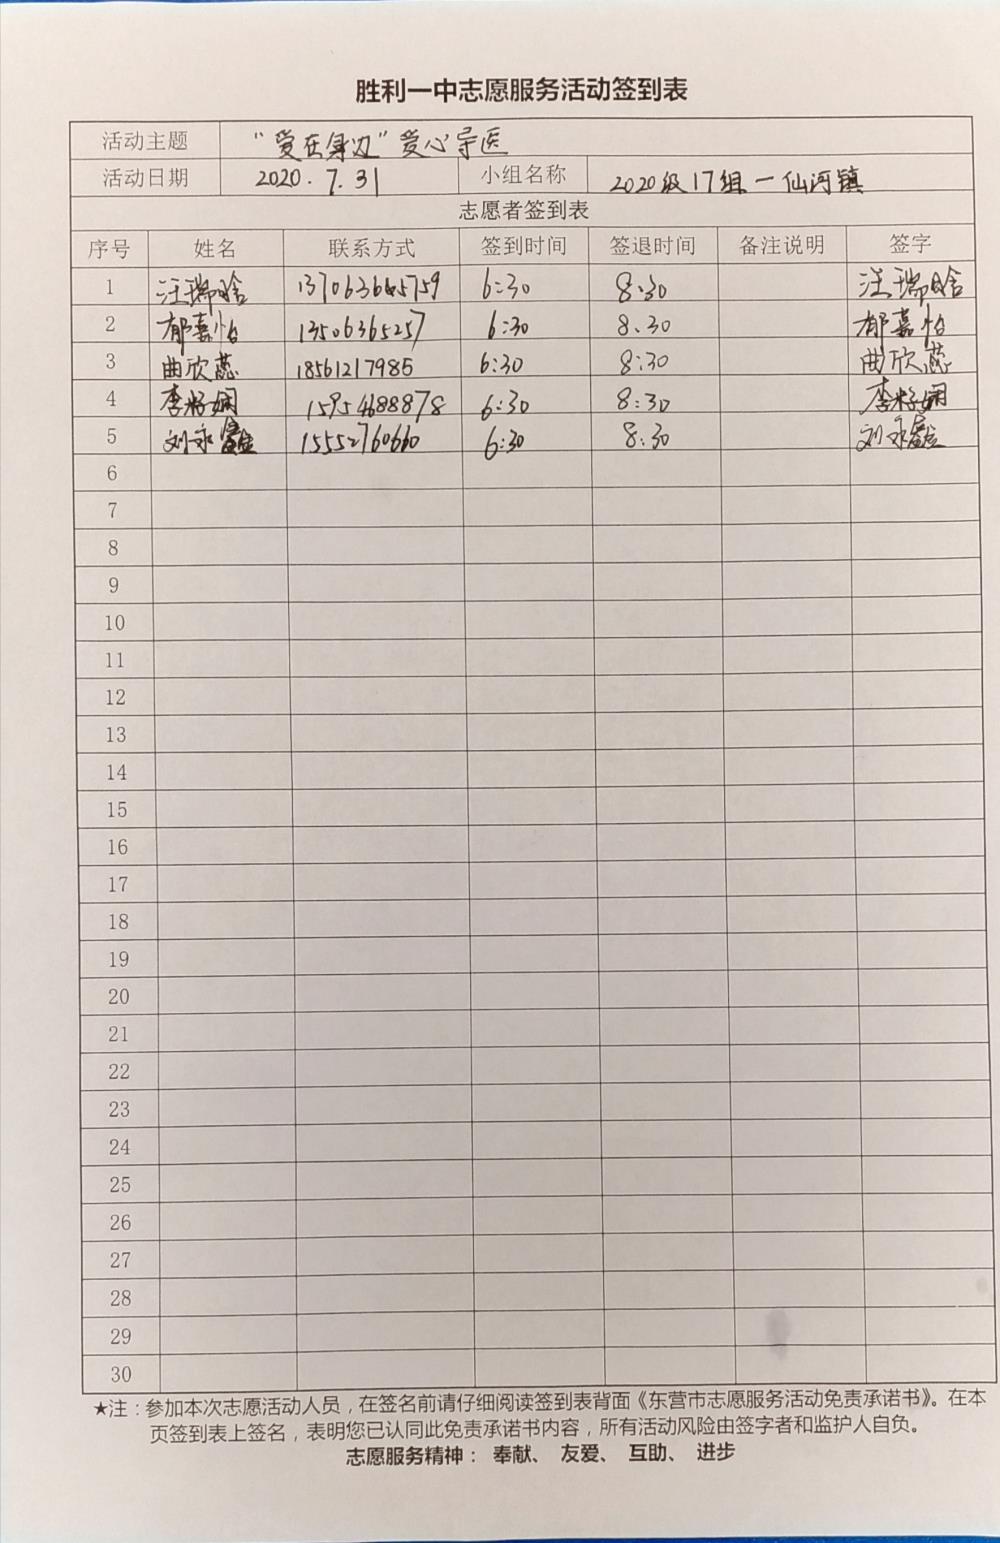 胜利一中志愿服务活动签到表
活动主题 “爱在身边”爱心导医
活动日期 2020.7.31 小组名称 2020级17组一仙河镇
志愿者签到表
序号 姓名 联系方式 签到时间 签退时间 备注说明 签字
1 汪瑞晗 6:30 8:30 汪瑞晗
2 郁嘉怡 13506365257 6:30 8.30 郁嘉怡
3 曲欣蕊 18561217985 6:30 8:30 曲欣蕊
4 李 娴 15954688878 6:30 8:30 李 娴
5 刘永鑫 15552760660 6:30 8:30 刘永鑫
6
7
8
9
10
11
12
13
14
15
16
17
18
19
20
21
22
23
24
25
26
27
28
29
30
★注：参加本次志愿活动人员，在签名前请仔细阅读签到表背面《东营市志愿服务活动免责承诺书》。在本
页签到表上签名，表明您已认同此免责承诺书内容，所有活动风险由签字者和监护人自负。
志愿服务精神： 奉献、 友爱、 互助、 进步